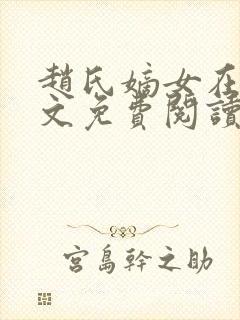 趙氏嫡女在
文免費閱讀
宮島幹之助